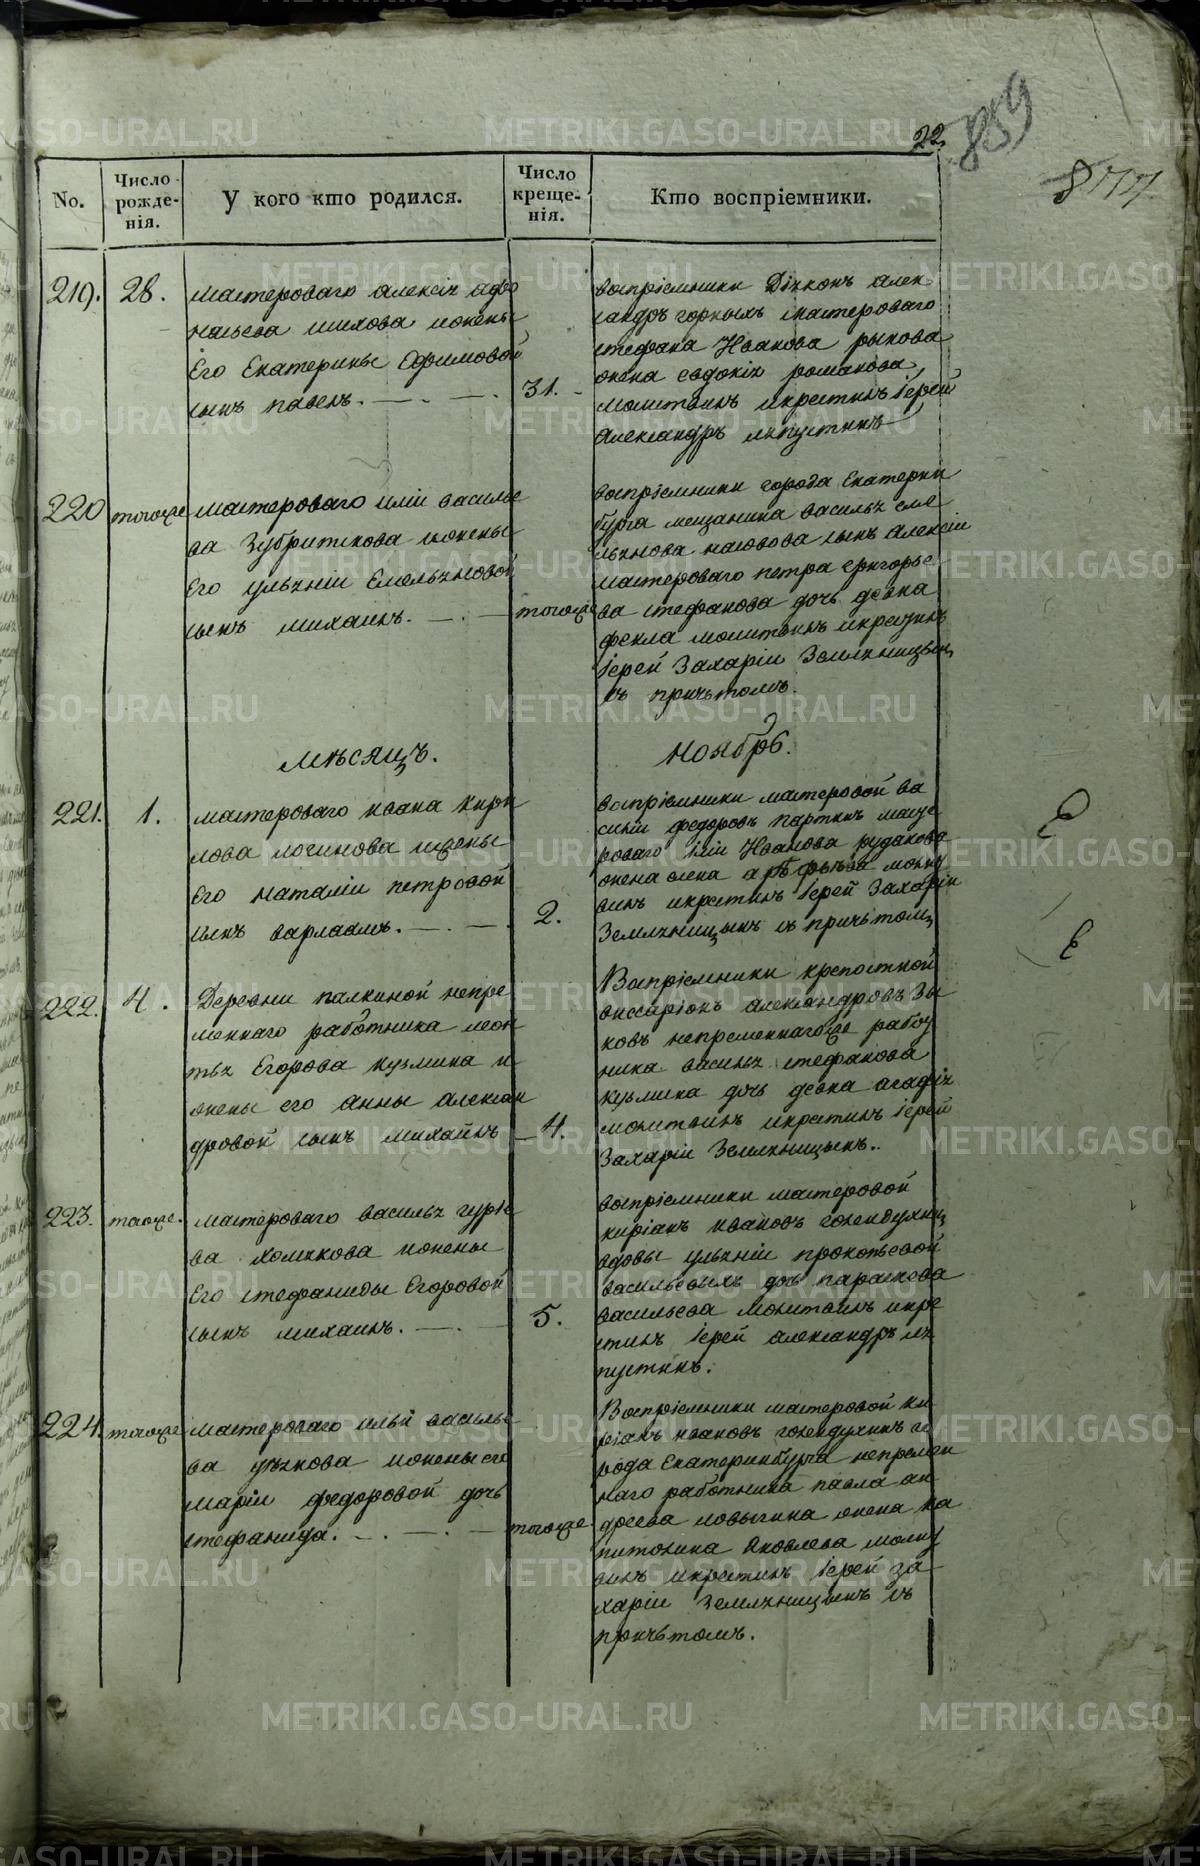 22
859
No.
Число рожде-нія.
У кого кто родился.
Число креще-нія.
Кто воспріемники.
219.
28.
мастероваго алексѣя афо
насьева шилова ижены
Его Екатерины Ефимовой
сынъ павелъ.
31.
воспріемники Діяконъ алек
сандръ горныхъ мастероваго
стефана Иванова рыкова
жена евдокія романова
молитвилъ икрестилъ іерей
Александръ ляпустинъ
220
тогоже
мастероваго иліи василье
ва Зубриткова ижены
Его ульяніи Емельяновой
сынъ михаилъ.
тогоже
воспріемники города Екатерин
бурга мещанина василья еме
льянова сынъ алексій
мастероваго петра григорье
ва стефанова дочь девка
фекла молитвилъ икрестилъ
іерей Захаріи Земляницынъ
съ причьтомъ.
мѣсяцъ.
ноябрь.
221.
1.
мастероваго ивана кири
лова логинова ижены
Его наталіи петровой
сынъ варлаамъ.
2.
воспріемники мастеровой ва
силіи федоровъ партинъ масте
роваго иліи Иванова рудакова
жена елена молит
вилъ икрестилъ іерей Захаріи
Земляницынъ съ причьтомъ
222.
4.
Деревни палкиной непре
меннаго работника леон
тья Егорова кузмина и
жены его анны алексан
дровой сынъ михаилъ
4.
Воспріемники крепостной
виссаріонъ александровъ Зы
ковъ непременнагоже работ
ника василья стефанова
кузмина дочь девка агафія
молитвилъ икрестилъ іерей
Захаріи Земляницынъ..
223.
тогоже.
мастероваго василья гурье
ва холжкова ижены
Его стефаниды Егоровой
сынъ михаилъ.
5.
воспріемники мастеровой
киріакъ ивановъ голендухинъ
вдовы ульяніи прокопьевой
васильевыхъ дочь параскева
васильева Молитвилъ икре
стилъ іерей александръ ля
пустинъ.
224.
тогоже
мастероваго ильи василье
ва ижены его
маріи федоровой дочь
стефанида.
тогоже
Воспріемники мастеровой ки
ріакъ ивановъ голендухинъ го
рода Екатеринбурга непремен
наго работника павла ан
дреева жена ка
питолина Яковлева молит
вилъ икрестилъ іерей за
харіи Земляницынъ съ
причьтомъ.
METRIKI.GASO-URAL.RU